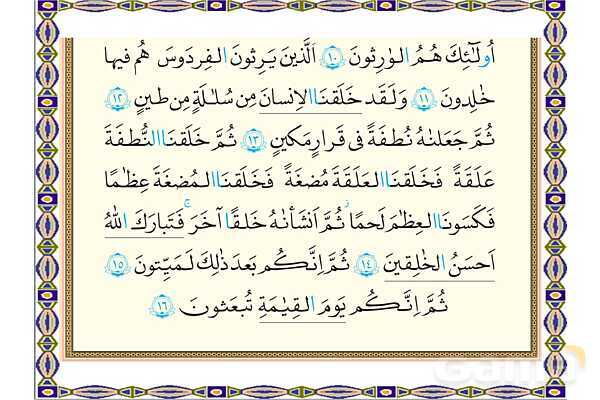 اُولٰٓئِكَ هُمُ الوٰرِثونَ ﴿١٠﴾ اَلَّذينَ يَرِثونَ الفِردَوسَ هُم فيها
خٰلِدونَ ﴿١١﴾ وَلَقَد خَلَقنَا الاِنسانَ مِن سُلٰلَةٍ مِن طينٍ ﴿١٢﴾
ثُمَّ جَعَلنٰهُ نُطفَةً فى قَرارٍ مَكينٍ ﴿١٣﴾ ثُمَّ خَلَقنَا النُّطفَةَ
عَلَقَةً فَخَلَقنَا العَلَقَةَ مُضغَةً فَخَلَقنَا المُضغَةَ عِظٰمًا
فَكَسَونَا العِظٰمَ لَحمًا ثُمَّ اَنشَأنٰهُ خَلقًا آخَرَ ۚ فَتَبارَكَ اللّٰهُ
اَحسَنُ الخٰلِقينَ ﴿١٤﴾ ثُمَّ اِنَّكُم بَعدَ ذٰلِكَ لَمَيِّتونَ ﴿١٥﴾
ثُمَّ اِنَّكُم يَومَ القِيٰمَةِ تُبعَثونَ ﴿١٦﴾
Gama